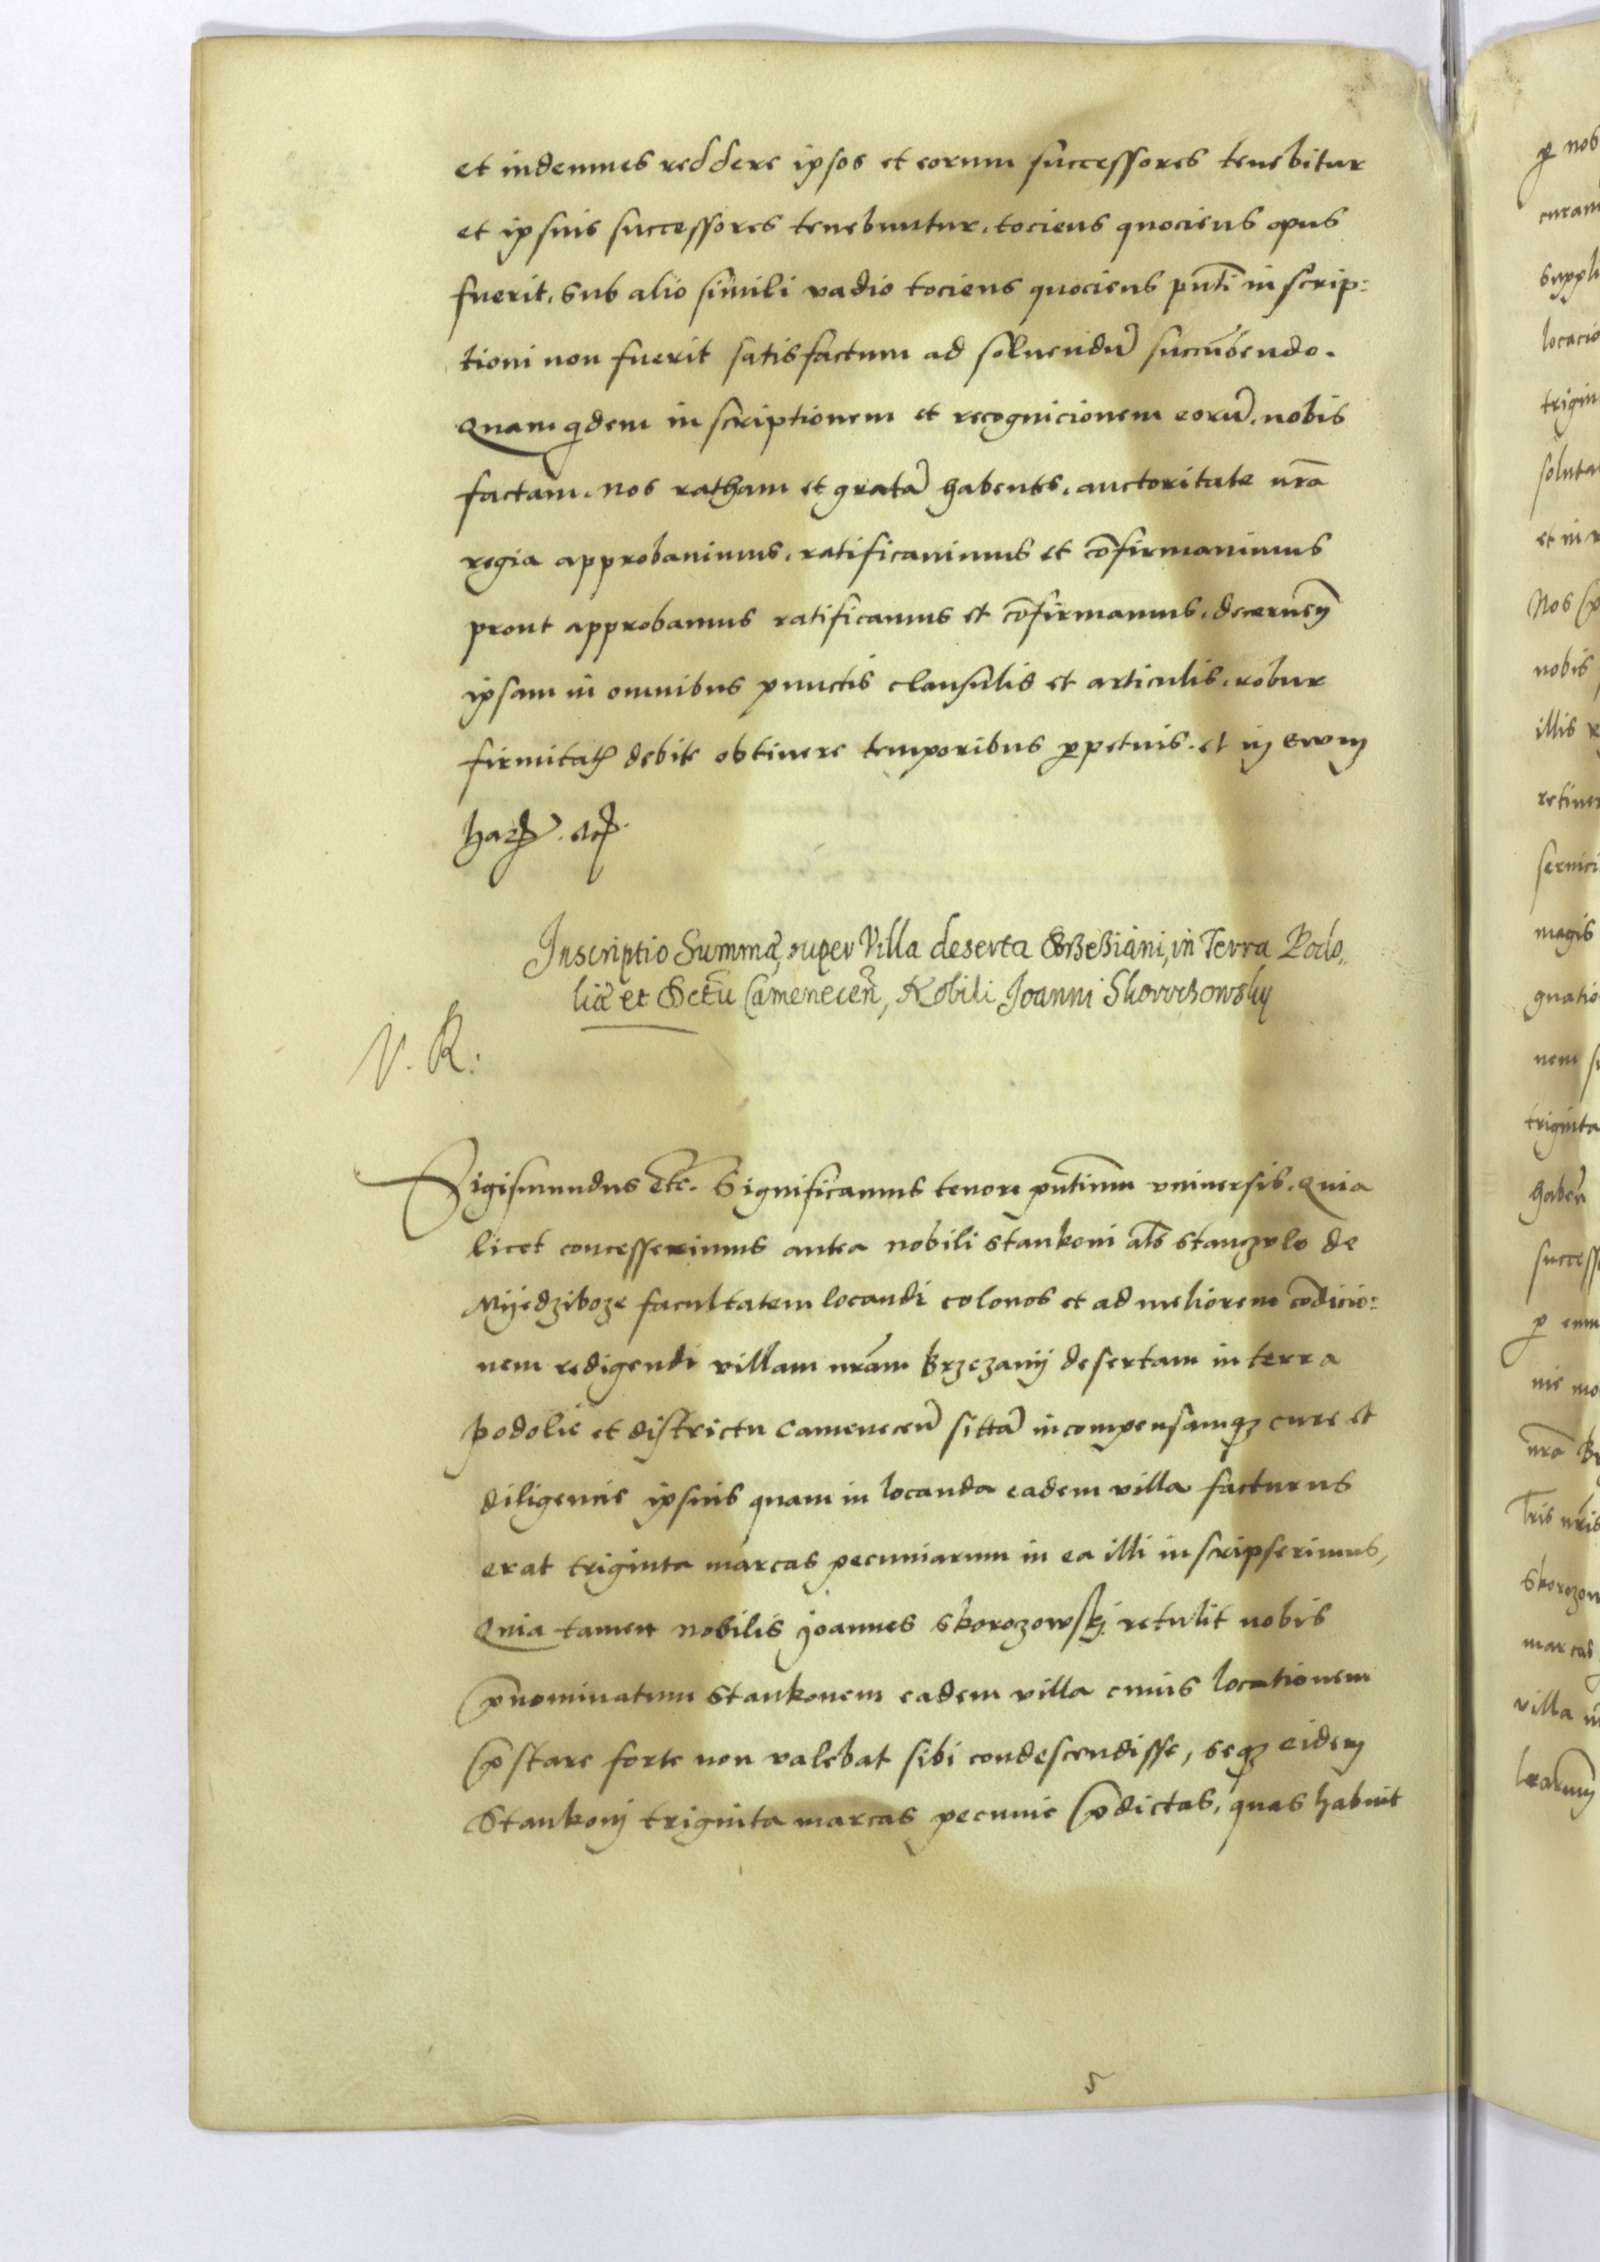 et indemnes reddere ipsos et eorum successores tenebitur
et ipsius successores tenebuntur. tociens quociens opus
fuerit. Sub alio simili vadio tociens quociens pñti in scrip:
tioni non fuerit satisfactum ad soluendũ succũbendo.
Quam qidem in scriptionem et recognicionem eorũ. nobis
factam. nos ratham et gratã habentes. auctoritate nrã
regia approbauimus. ratificauimus et cõfirmauimus
prout approbamus ratificamus et cõfirmamus. decernen
ipsam in omnibus punctis clausulis et articulis. robur
firmitatis debite obtinere temporibus ppetuis. et in evum
harz. etc.
Inscriptio Summæ, super Villa deserta Brzeziani, in Terra Podo„
liæ et Dctũ Camenecen̄, Nobili Joanni Skorczowsky
V. R:
Sigismundus etc. Significamus tenore pñtium vniuersis. Quia
licet concesserimus antea nobili stankoni als stanczulo de
Myedziboze facultatem locandi colonos et ad meliorem cõdicio:
nem redigendi villam nrãm Brzezanij desertam in terra
podolie et districtu Camenecen̄ sittã incompensamqz cure et
diligencie ipsius quam in locanda eadem villa facturus
erat triginta marcas pecuniarum in ea illi in scripserimus,
Quia tamen nobilis joannes skorozowskj retulit nobis
pnominatum Stankonem eadem villa cuius locationem
pstare forte non valebat sibi condescendisse, seqz eidem
Stankonj triginta marcas pecunie pdictas, quas habuit
5